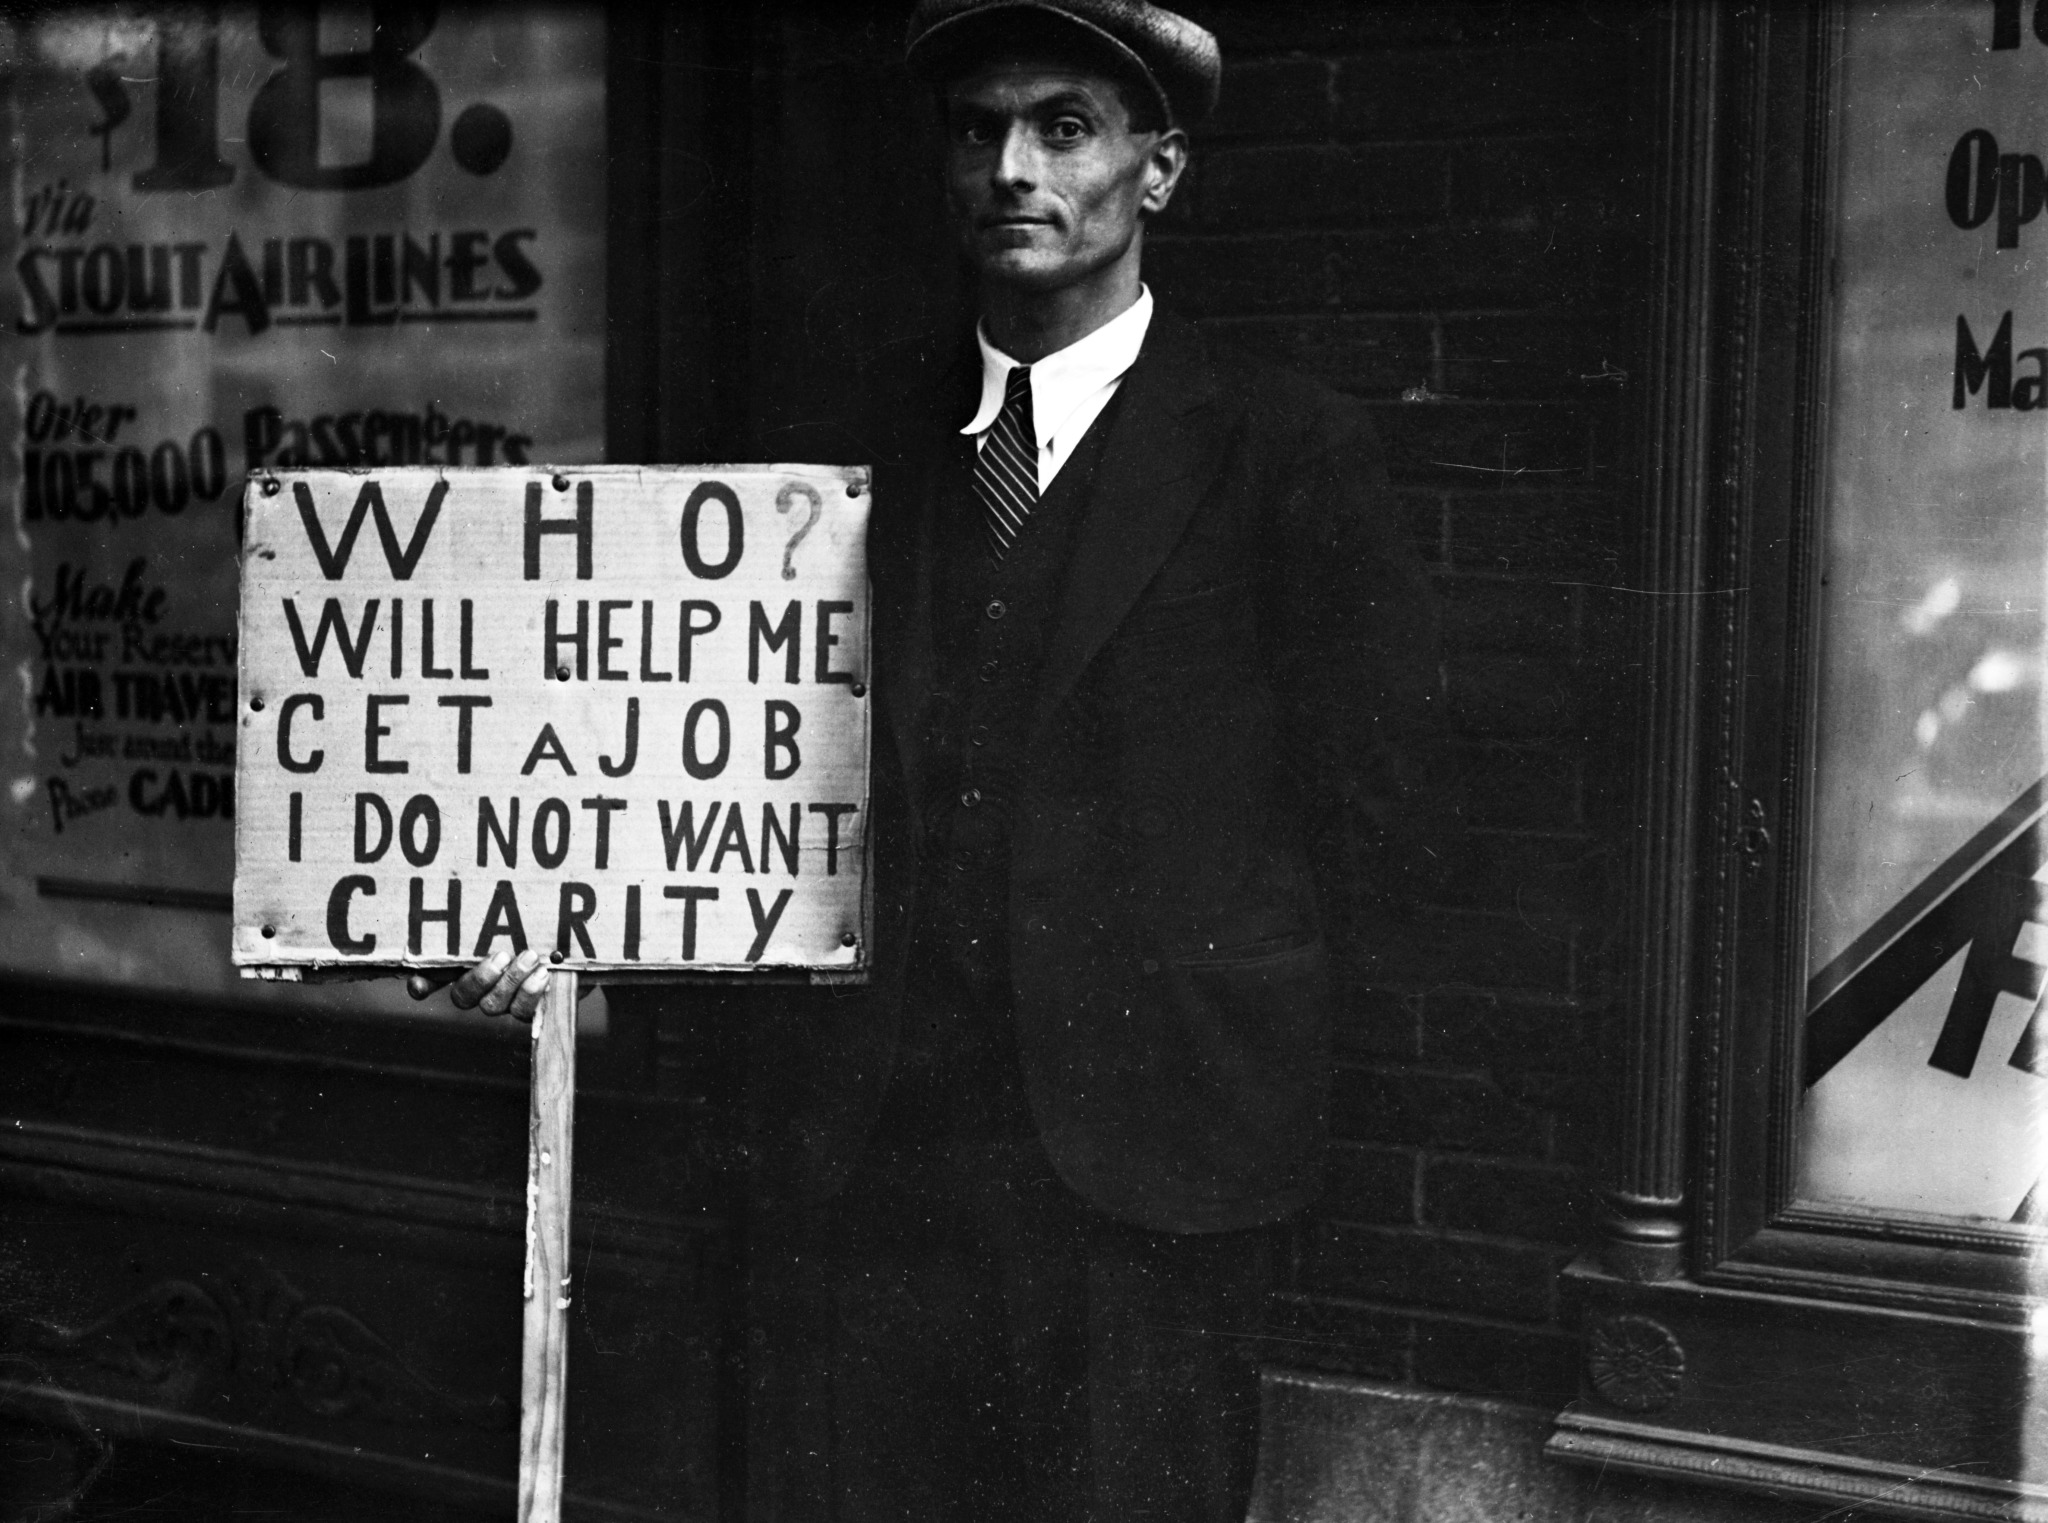 $18.
via
STOUT AIR LINES
Over
105,000 Passengers
Make
Your
AIR
Just around the
Phone
WHO?
WILL HELP ME
CET A JOB
I DO NOT WANT
CHARITY